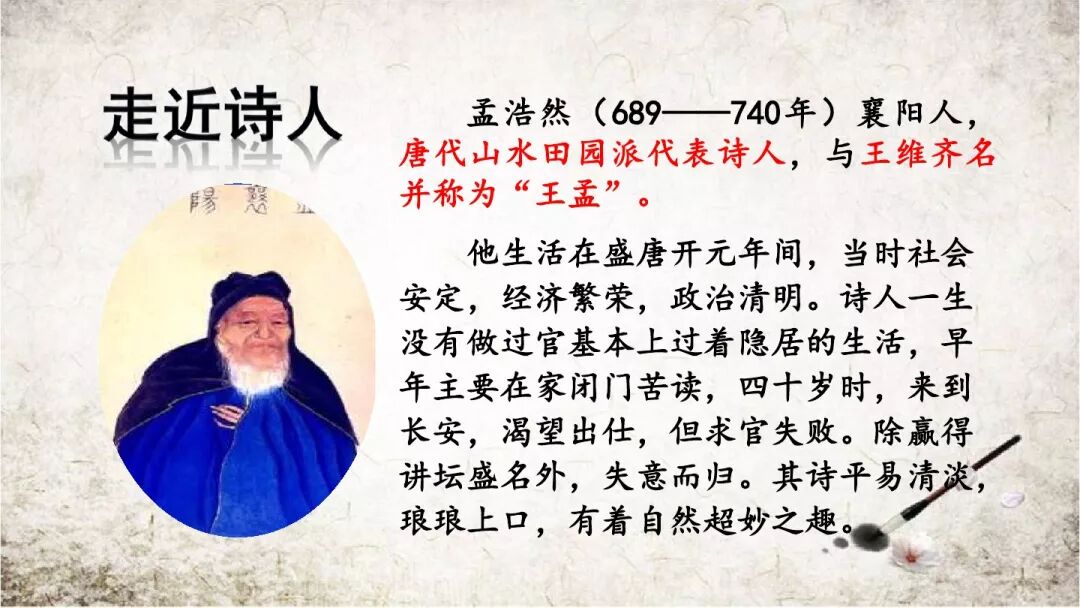 走近诗人
孟浩然（689——740年）襄阳人，
唐代山水田园派代表诗人，与王维齐名
并称为“王孟”。
他生活在盛唐开元年间，当时社会
安定，经济繁荣，政治清明。诗人一生
没有做过官基本上过着隐居的生活，早
年主要在家闭门苦读，四十岁时，来到
长安，渴望出仕，但求官失败。除赢得
讲坛盛名外，失意而归。其诗平易清淡，
琅琅上口，有着自然超妙之趣。
襄陽